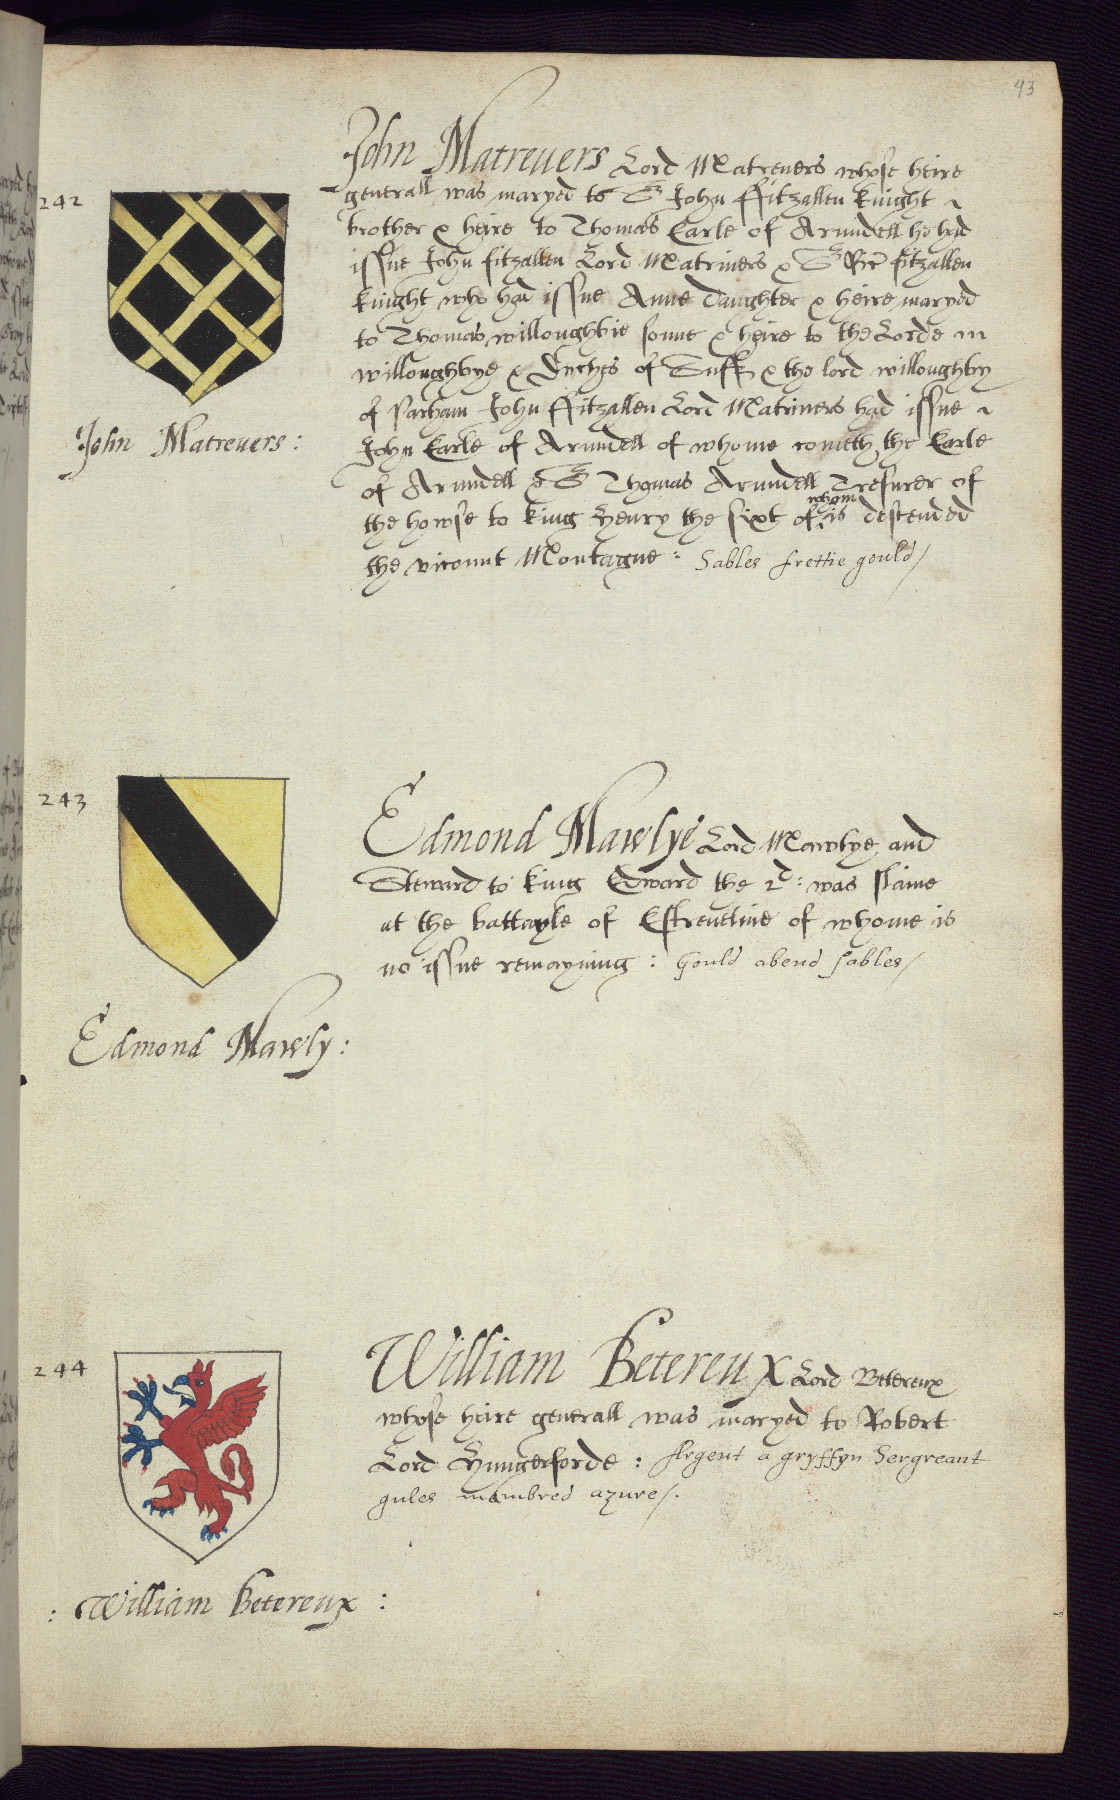 93
242
John Matrevers Lord Matrevers whose heire
generall was maryed to Sr John ffitzallen knight
brother & heire to Thomas Earle of Arundell he had
issue John fitzallen Lord Matrivers & Sr fitzallen
knight who had issue Anne daughter & heire maryed
to Thomas willoughbie sonne & heire to the Lorde
willoughbye & of Suff & the lord willoughby
of parham John ffitzallen Lord Matrivers had issue
John Earle of Arundell of whome cometh the Earle
of Arundell & Sr Thomas Arundell Tresurer of
the howse to king Henry the sixt of whom is descended
the vicount Montague : Sables frettie gould /
John Matrevers :
243
Edmond Mawlye Lord Mawlye and
Steward to king Edward the 2d : was slaine
at the battayle of Estreveline of whome is
no issue remayning : Gould abend sables /
Edmond Mawly :
244
William Betereux Lord Betereux
whose heire generall was maryed to Robert
Lord Hungerforde : Argent a gryffyn Sergreant
gules membred azure /.
: William Betereux :